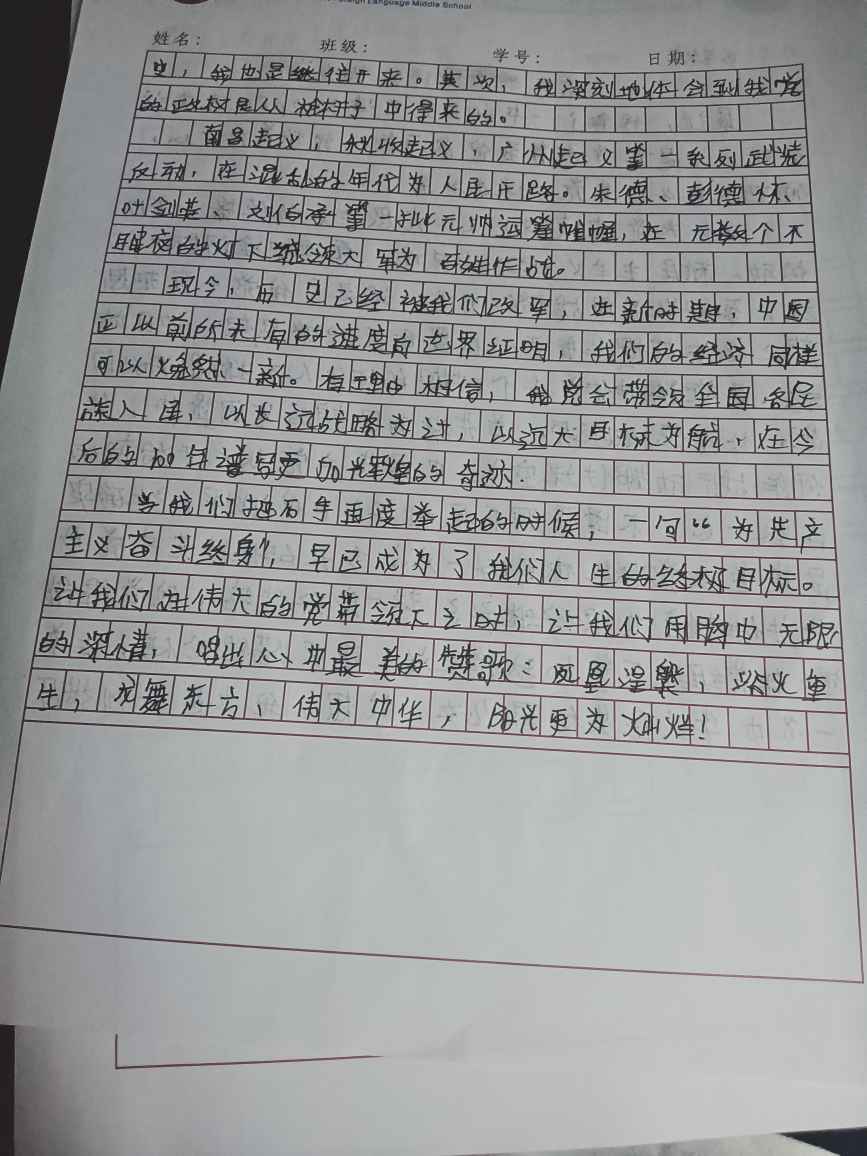 Language Middle School
姓名： 班级： 学号： 日期：
史，我也是继往开来。其次，我深刻地体会到我党
的政权是从枪杆子中得来的。
南昌起义，秋收起义，广州起义等一系列武装
反动，在混乱的年代为人民开路。朱德、彭德怀、
叶剑英、刘伯承等一批元帅运筹帷幄，在无数个不
眠夜的灯下统领大军为百姓作战。
现今，历史已经被我们改写，在新时期，中国
正以前所未有的速度向世界证明，我们的经济同样
可以焕然一新。有理由相信，我党会带领全国各民
族人民，以长远战略为计，以远大目标为航，在今
后的100年谱写更加光辉的奇迹.
当我们把右手再度举起的时候，一句“为共产
主义奋斗终身”，早已成为了我们人生的终极目标。
让我们在伟大的党带领下之时，让我们用胸中无限
的深情，唱出心中最美的赞歌：凤凰涅槃，浴火重
生，龙舞东方，伟大中华，阳光更为灿烂！